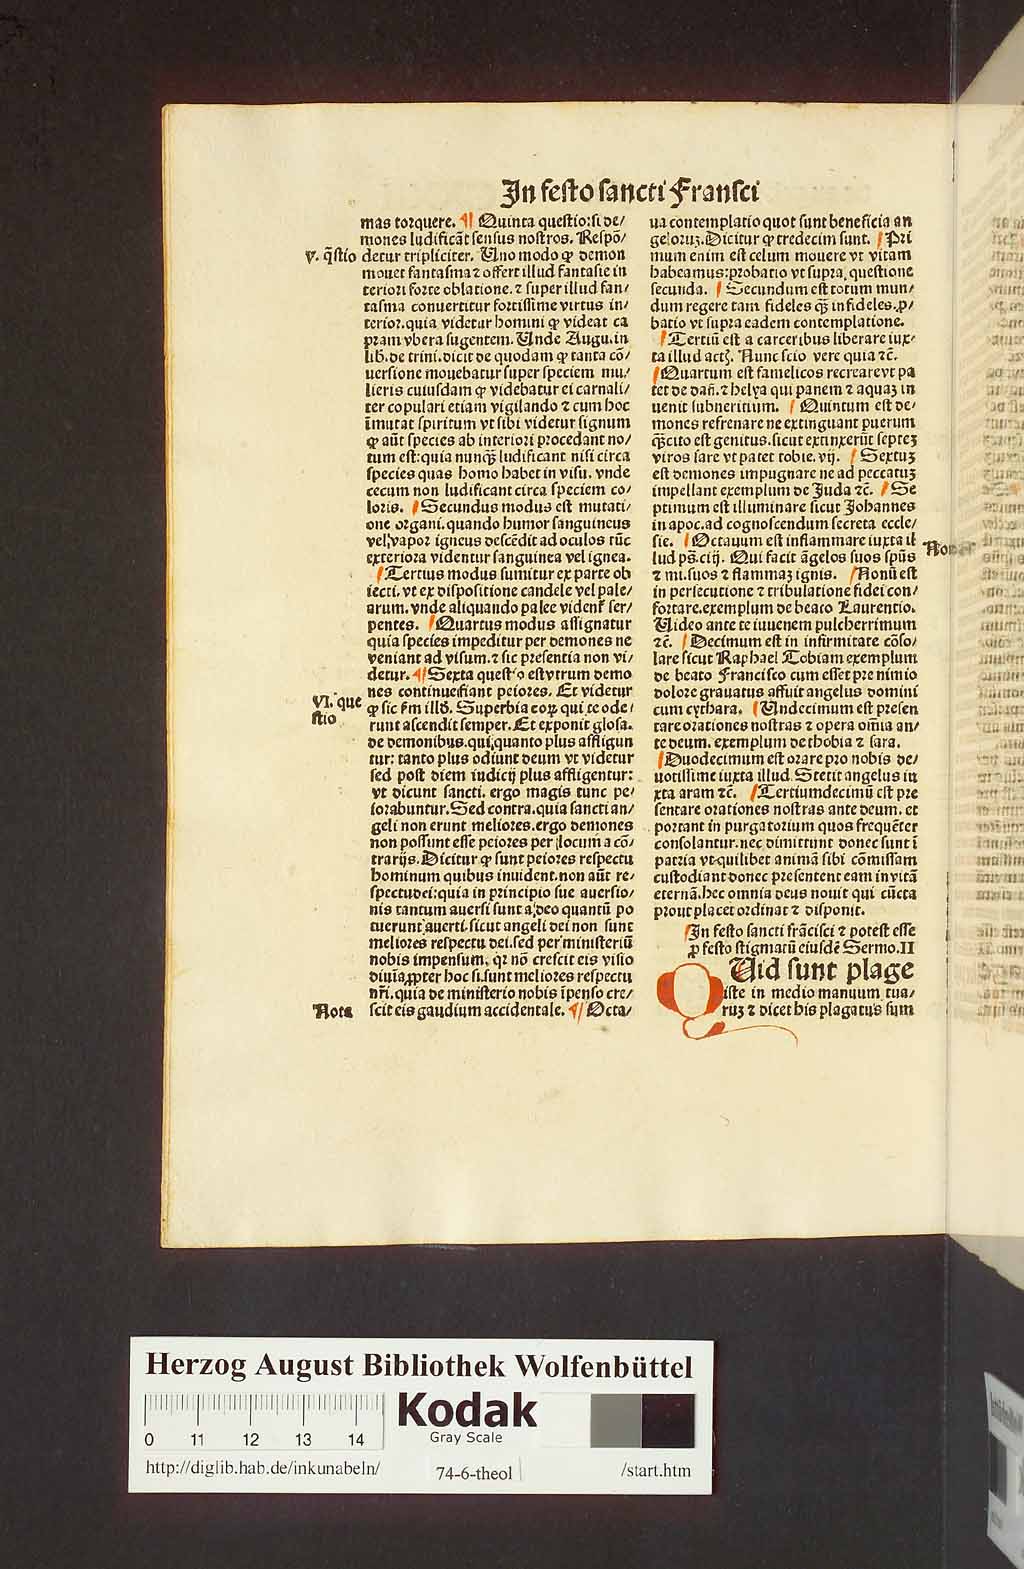 In festo sancti Fransci
mas torquere. ¶ Quinta questio: si de/
mones ludificāt sensus nostros. Respō/
v. q̄stio
detur tripliciter. Uno modo ꝙ demon
mouet fantasma ⁊ offert illud fantasie in
teriori forte oblatione. ⁊ super illud fan/
tasma conuertitur fortissime virtus in/
terior. quia videtur homini ꝙ videat ca
pram vbera sugentem. Unde Augu. in
lib. de trini. dicit de quodam ꝙ tanta cō/
uersione mouebatur super speciem mu/
lieris cuiusdam ꝙ videbatur ei carnali/
ter copulari etiam vigilando ⁊ cum hoc
īmutat spiritum vt sibi videtur signum
ꝙ aūt species ab interiori procedant no/
tum est: quia nunqȝ ludificant nisi circa
species quas homo habet in visu. vnde
cecum non ludificant circa speciem co/
loris. Secundus modus est mutati/
one organi. quando humor sanguineus
vel vapor igneus descēdit ad oculos tūc
exteriora videntur sanguinea vel ignea.
Tertius modus sumitur ex parte ob
iecti. vt ex dispositione candele vel pale/
arum. vnde aliquando palee vident̄ ser/
pentes. Quartus modus assignatur
quia species impeditur per demones ne
veniant ad visum. ⁊ sic presentia non vi/
detur. ¶ Sexta questio est vtrum demo
nes continue fiant peiores. Et videtur
VI. que
stio
ꝙ sic ẜm illḋ. Superbia eoꝝ qui te ode/
runt ascendit semper. Et exponit glosa.
de demonibus. qui quanto plus affligun
tur: tanto plus odiunt deum vt videtur
sed post diem iudicij plus affligentur:
vt dicunt sancti. ergo magis tunc pe/
iorabuntur. Sed contra. quia sancti an/
geli non erunt meliores. ergo demones
non possunt esse peiores per locum a cō/
trarijs. Dicitur ꝙ sunt peiores respectu
hominum quibus inuident. non aūt re/
spectu dei: quia in principio sue auersio/
nis tantum auersi sunt a deo quantū po
tuerunt auerti. sicut angeli dei non sunt
meliores respectu dei. sed per ministeriū
nobis impensum. qꝛ nō crescit eis visio
diuīa ꝓpter hoc si sunt meliores respectu
nr̄i. quia de ministerio nobis īpenso cre/
Nota
scit eis gaudium accidentale. ¶ Octa/
ua contemplatio quot sunt beneficia an
geloruȝ. Dicitur ꝙ tredecim sunt. Pri
mum enim est celum mouere vt vitam
habeamus: probatio vt supra questione
secunda. Secundum est totum mun/
dum regere tam fideles qȝ infideles. ꝓ/
batio vt supra eadem contemplatione.
Tertiū est a carceribus liberare iux/
ta illud actȝ. Nunc scio vere quia ⁊c̄.
Quartum est famelicos recreare vt pa
tet de dañ. ⁊ helya qui panem ⁊ aquaȝ in
uenit subneritium. Quintum est de/
mones refrenare ne extinguant puerum
qȝcito est genitus. sicut extinxerūt septeȝ
viros sare vt patet tobie. vij. Sextuȝ
est demones impugnare ne ad peccatuȝ
impellant exemplum de Juda ⁊c̄. Se
ptimum est illuminare sicut Johannes
in apoc. ad cognoscendum secreta eccle/
sie. Octauum est inflammare iuxta il
lud ps̄. ciij. Qui facit āgelos suos sp̄us
⁊ mi. suos ⁊ flammaȝ ignis. Nonū est
in persecutione ⁊ tribulatione fidei con/
fortare. exemplum de beato Laurentio.
Uideo ante te iuuenem pulcherrimum
⁊c̄. Decimum est in infirmitate cōso/
lare sicut Raphael Tobiam exemplum
de beato Francisco cum esset pre nimio
dolore grauatus affuit angelus domini
cum cythara. Undecimum est presen
tare orationes nostras ⁊ opera om̄ia an/
te deum. exemplum de thobia ⁊ sara.
Duodecimum est orare pro nobis de/
uotissime iuxta illud. Stetit angelus iu
xta aram ⁊c̄. Tertiumdecimū est pre
sentare orationes nostras ante deum. et
portant in purgatorium quos frequēter
consolantur. nec dimittunt donec sunt ī
patria vt quilibet animā sibi cōmissam
custodiant donec presentent eam in vitā
eternā. hec omnia deus nouit qui cūcta
prout placet ordinat ⁊ disponit.
In festo sancti frācisci ⁊ potest esse
ꝓ festo stigmatū eiusdē Sermo. II
QUid sunt plage
iste in medio manuum tua/
ruȝ ⁊ dicet his plagatus sum
Herzog August Bibliothek Wolfenbüttel
Kodak
Gray Scale
0 11 12 13 14
http://diglib.hab.de/inkunabeln/ 74-6-theol /start.htm